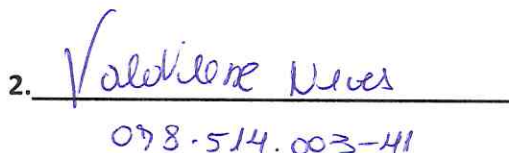 2. Valdilene Neves
078.514.003-41